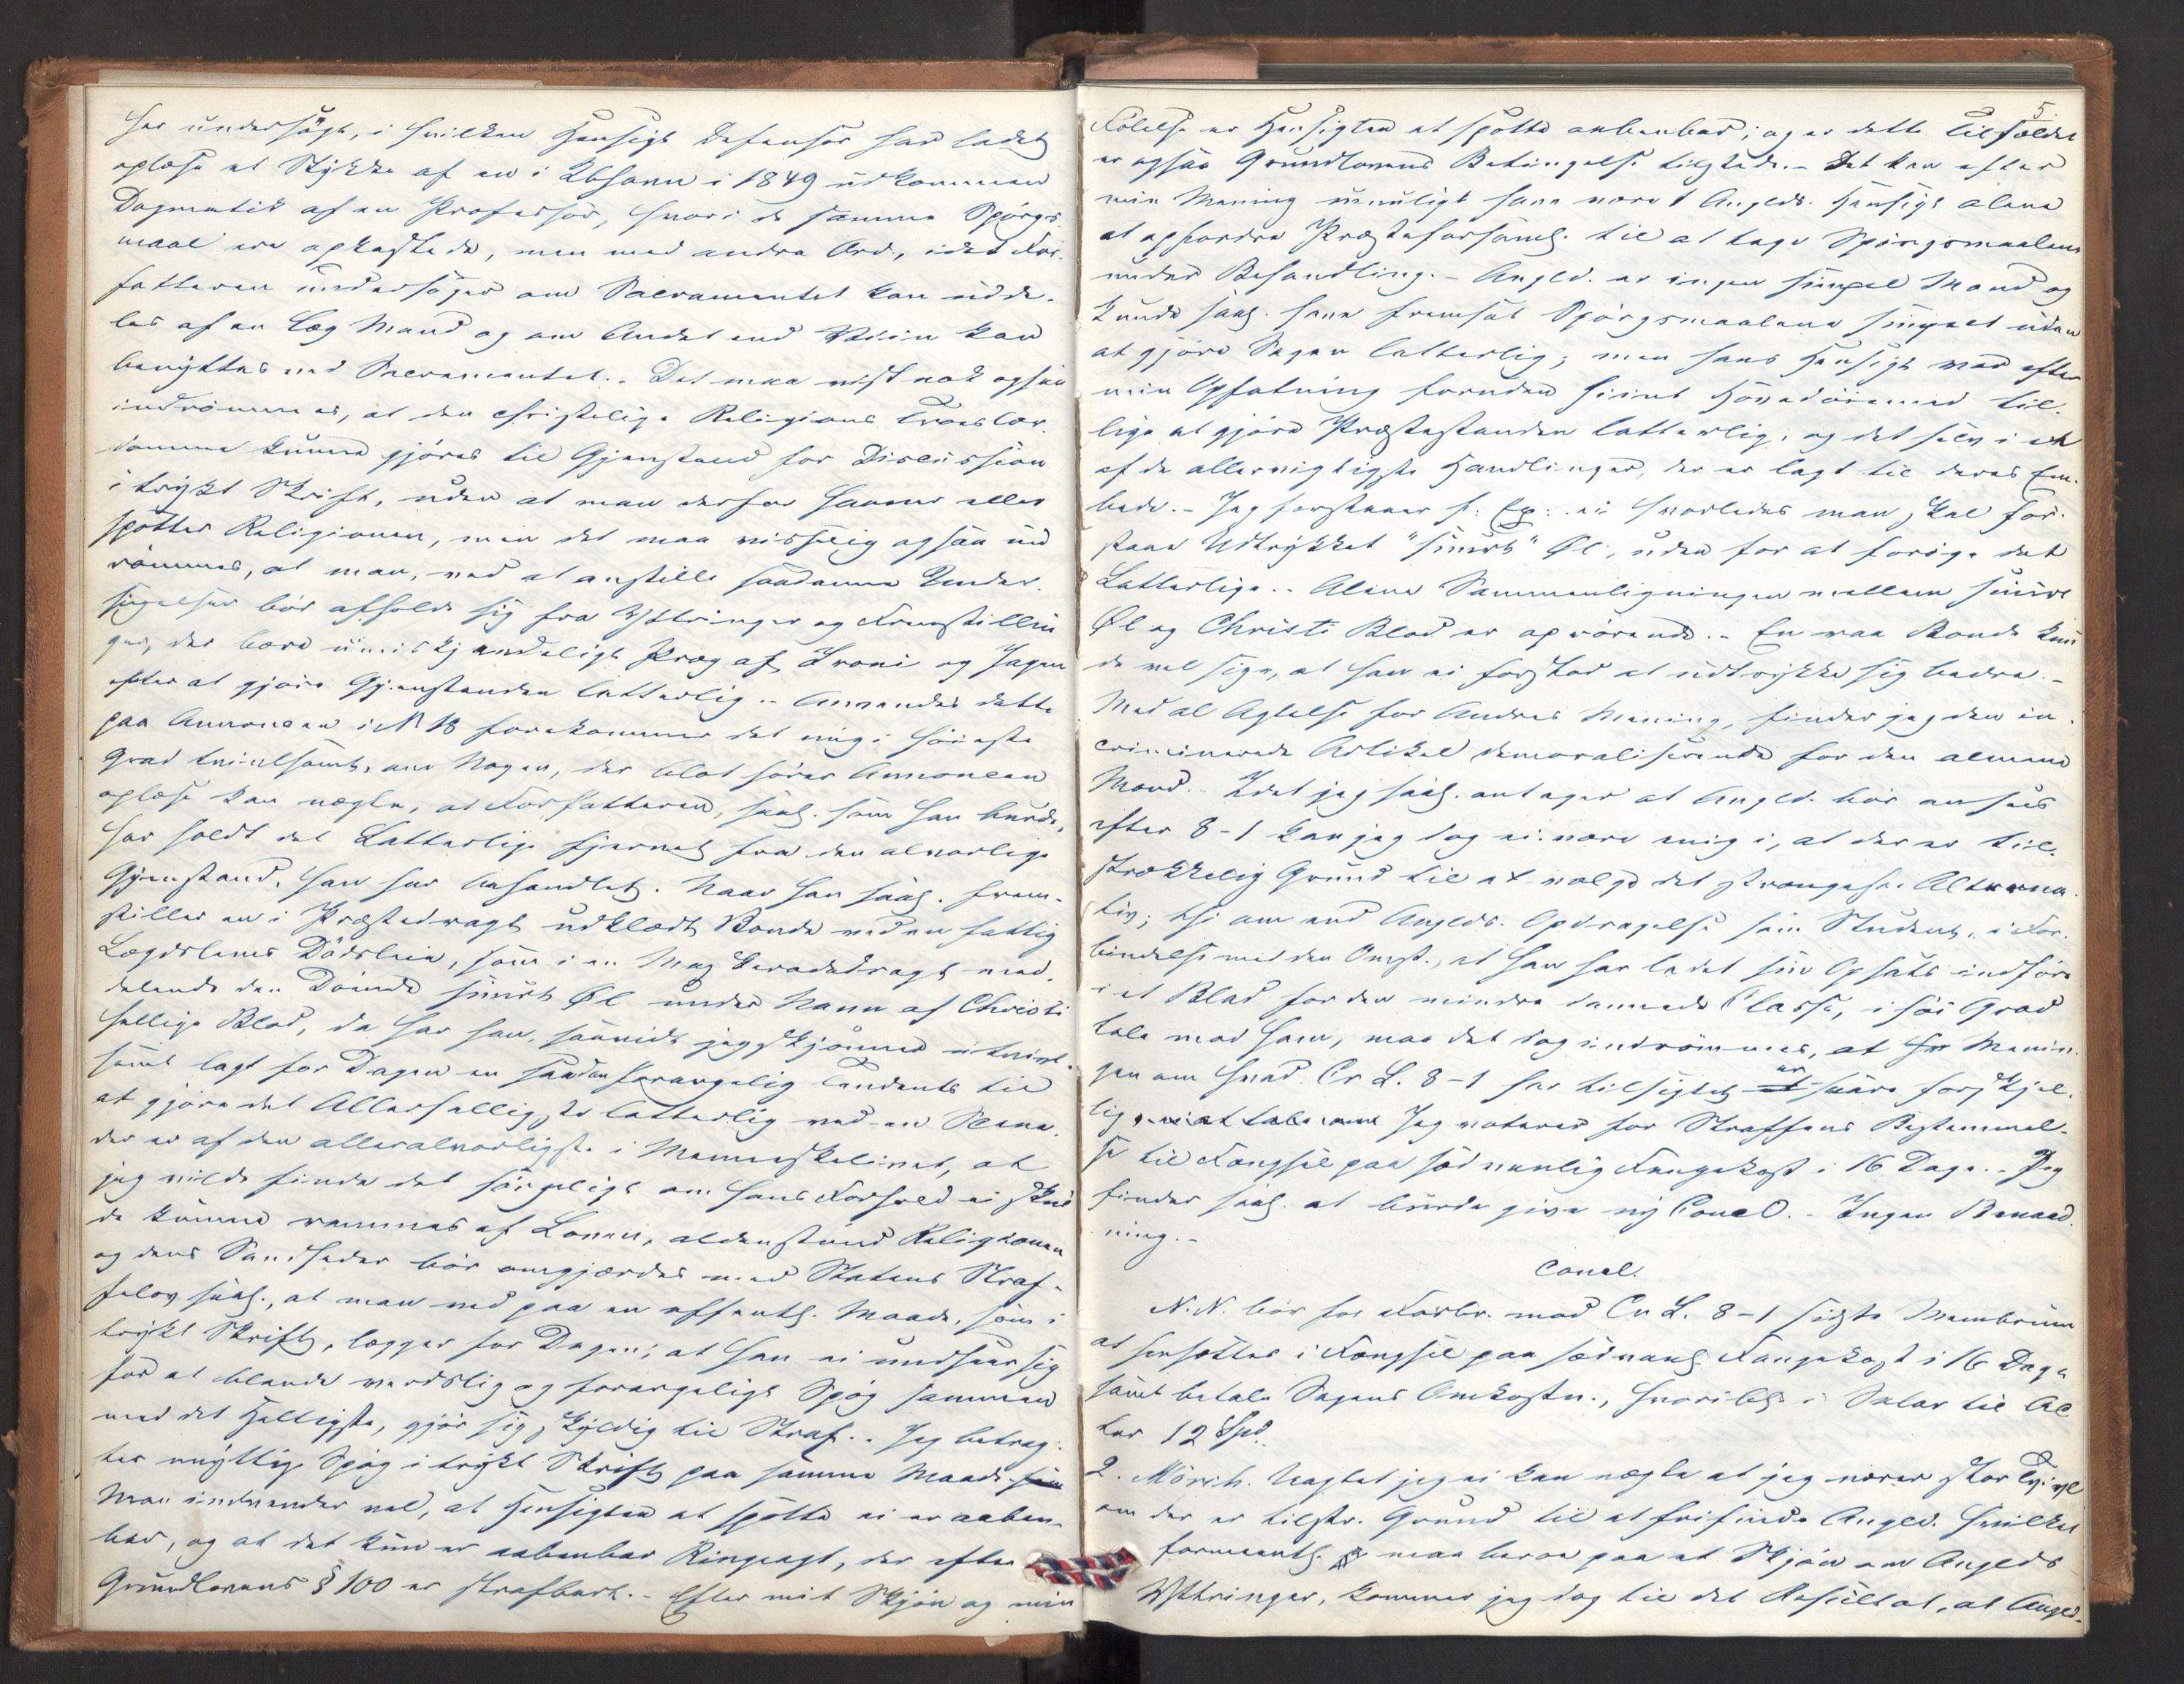 har undersøgt, i hvilken Hensigt Defensor har ladet
oplæse et Stykke af en i Kbhavn i 1849 udkommen
Dogmatik af en Professor, hvori de samme Spørgs-
maal ere opkastede, men med andre Ord, idet For-
fatteren undersøger om Sacramentet kan udde-
les af en Læg Mand og om Andet end Viin kan
benyttes ved Sacramentet. - Det maa vist nok ogsaa
indrømmes, at den christelige Religions Troeslær-
domme kunne gjøres til Gjenstand for Discussion
i trykt Skrift, uden at man derfor haaner eller
spotter Religionen, men det maa visselig ogsaa ind
rømmes, at man, ved at anstille saadanne Under-
søgelser bør afholde sig fra Yttringer og Fremstillin
ger, der bære umiskjendeligt Præg af Ironi og Jagen
efter at gjøre Gjenstanden latterlig. - Anvendes dette
paa Annoncen i N 18 forekommer det mig i høieste
Grad tvivlsomt, om Nogen, der blot hører Annoncen
oplæse kan nægte, at Forfatteren, saal. som han burde,
har holdt det Latterlige fjernet fra den alvorlige
Gjenstand, han har behandlet. Naar han saal. frem-
stiller en i Præstedragt udklædt Bonde ved en fattig
Lægdslems Dødsleie, som i en Mascaradedragt med-
delende den Døende suurt Øl under Navn af Christi
hellige Blod, da har han, saavidt jeg skjønner utvivl-
somt lagt for Dagen en saadan forargelig Tendents til
at gjøre det Allerhelligste latterlig ved en Scene,
der er af den alleralvorligste i Menneskelivet, at
jeg vilde finde det sørgeligt om hans Forhold ei skul
de kunne rammes af Loven, aldenstund Religionen
og dens Sandheder bør omgjærdes med Statens Straf-
felov saal., at man ved paa en offentl. Maade, som i
trykt Skrift, lægger for Dagen, at han ei undseer sig
for at blande verdslig og forargeligt Spøg sammen
med det Helligste, gjør sig skyldig til Straf. - Jeg betrag-
ter unyttig Spøg i trykt Skrift paa samme Maade som
Man indvender vel, at Hensigten at spotte ei er aaben-
bar, og at det kun er aabenbar Ringeagt, der efter
Grundlovens § 100 er strafbart. - Efter mit Skjøn og min
5
Følelse er Hensigten at spotte aabenbar; og er dette Tilfældet
er ogsaa Grundlovens Betingelse tilstede. - Det kan efter
min Mening umuligt have været Angelds. Hensigt alene
at opfordre Præsteforsaml. til at tage Spørgsmaalene
under Behandling. - Angeld. er ingen simpel Mand og
kunde saal. have fremsat Spørgsmaalene simpelt uden
at gjøre Sagen latterlig; men hans Hensigt var efter
min Opfatning foruden hiint Hovedøiemed til-
lige at gjøre Præstestanden latterlig, og det selv i en
af de allervigtigste Handlinger, der er lagt til deres Em-
bede. - Jeg forstaaer f: Ex: ei hvorledes man skal for-
staae Udtrykket "suurt" Øl, uden for at forøge det
Latterlige. - Alene Sammenligningen mellem suurt
Øl og Christi Blod er oprørende. - En raa Bonde kun
de vel sige, at han ei forstod at udtrykke sig bedre. -
Med al Agtelse for Andres Mening, finder jeg den in-
criminerede Artikel demoraliserende for den almene
Mand. - Idet jeg saal. antager at Angeld. bør ansees
efter 8-1 kan jeg dog ei være enig i, at der er til-
strækkelig Grund til at vælge det strængeste Alterna-
tiv; thi om end Angelds. Opdragelse som Student, i For-
bindelse med den Omst., at han har ladet sin Opsats indføre
i et Blad for den mindre dannede Classe, i høi Grad
tale mod ham, maa det dog indrømmes, at Menin-
gen om hvad Cr L. 8-1 har tilsigtet er forskjel-
lig Jeg voterer for Straffens Bestemmel-
se til Fængsel paa sædvanlig Fangekost i 16 Dage. - Jeg
finder saal. at burde give ny Concl. - Ingen Benaad-
ning. -
Concl.
N. N. bør for Forbr. mod Cr L. 8-1 sidste Membrum
at hensættes i Fængsel paa sædvanl. Fangekost i 16 Dage
samt betale Sagens Omkostn., hvoribl. i Salar til Ac
tor 12 Spd.
2. Mørch. Uagtet jeg ei kan nægte at jeg nærer stor Tvivl
om der er tilstr. Grund til at frifinde Angeld. hvilket
formeentl. maa beroe paa et Skjøn om Angelds
Yttringer, kommer jeg dog til det Resultat, at Angeld.